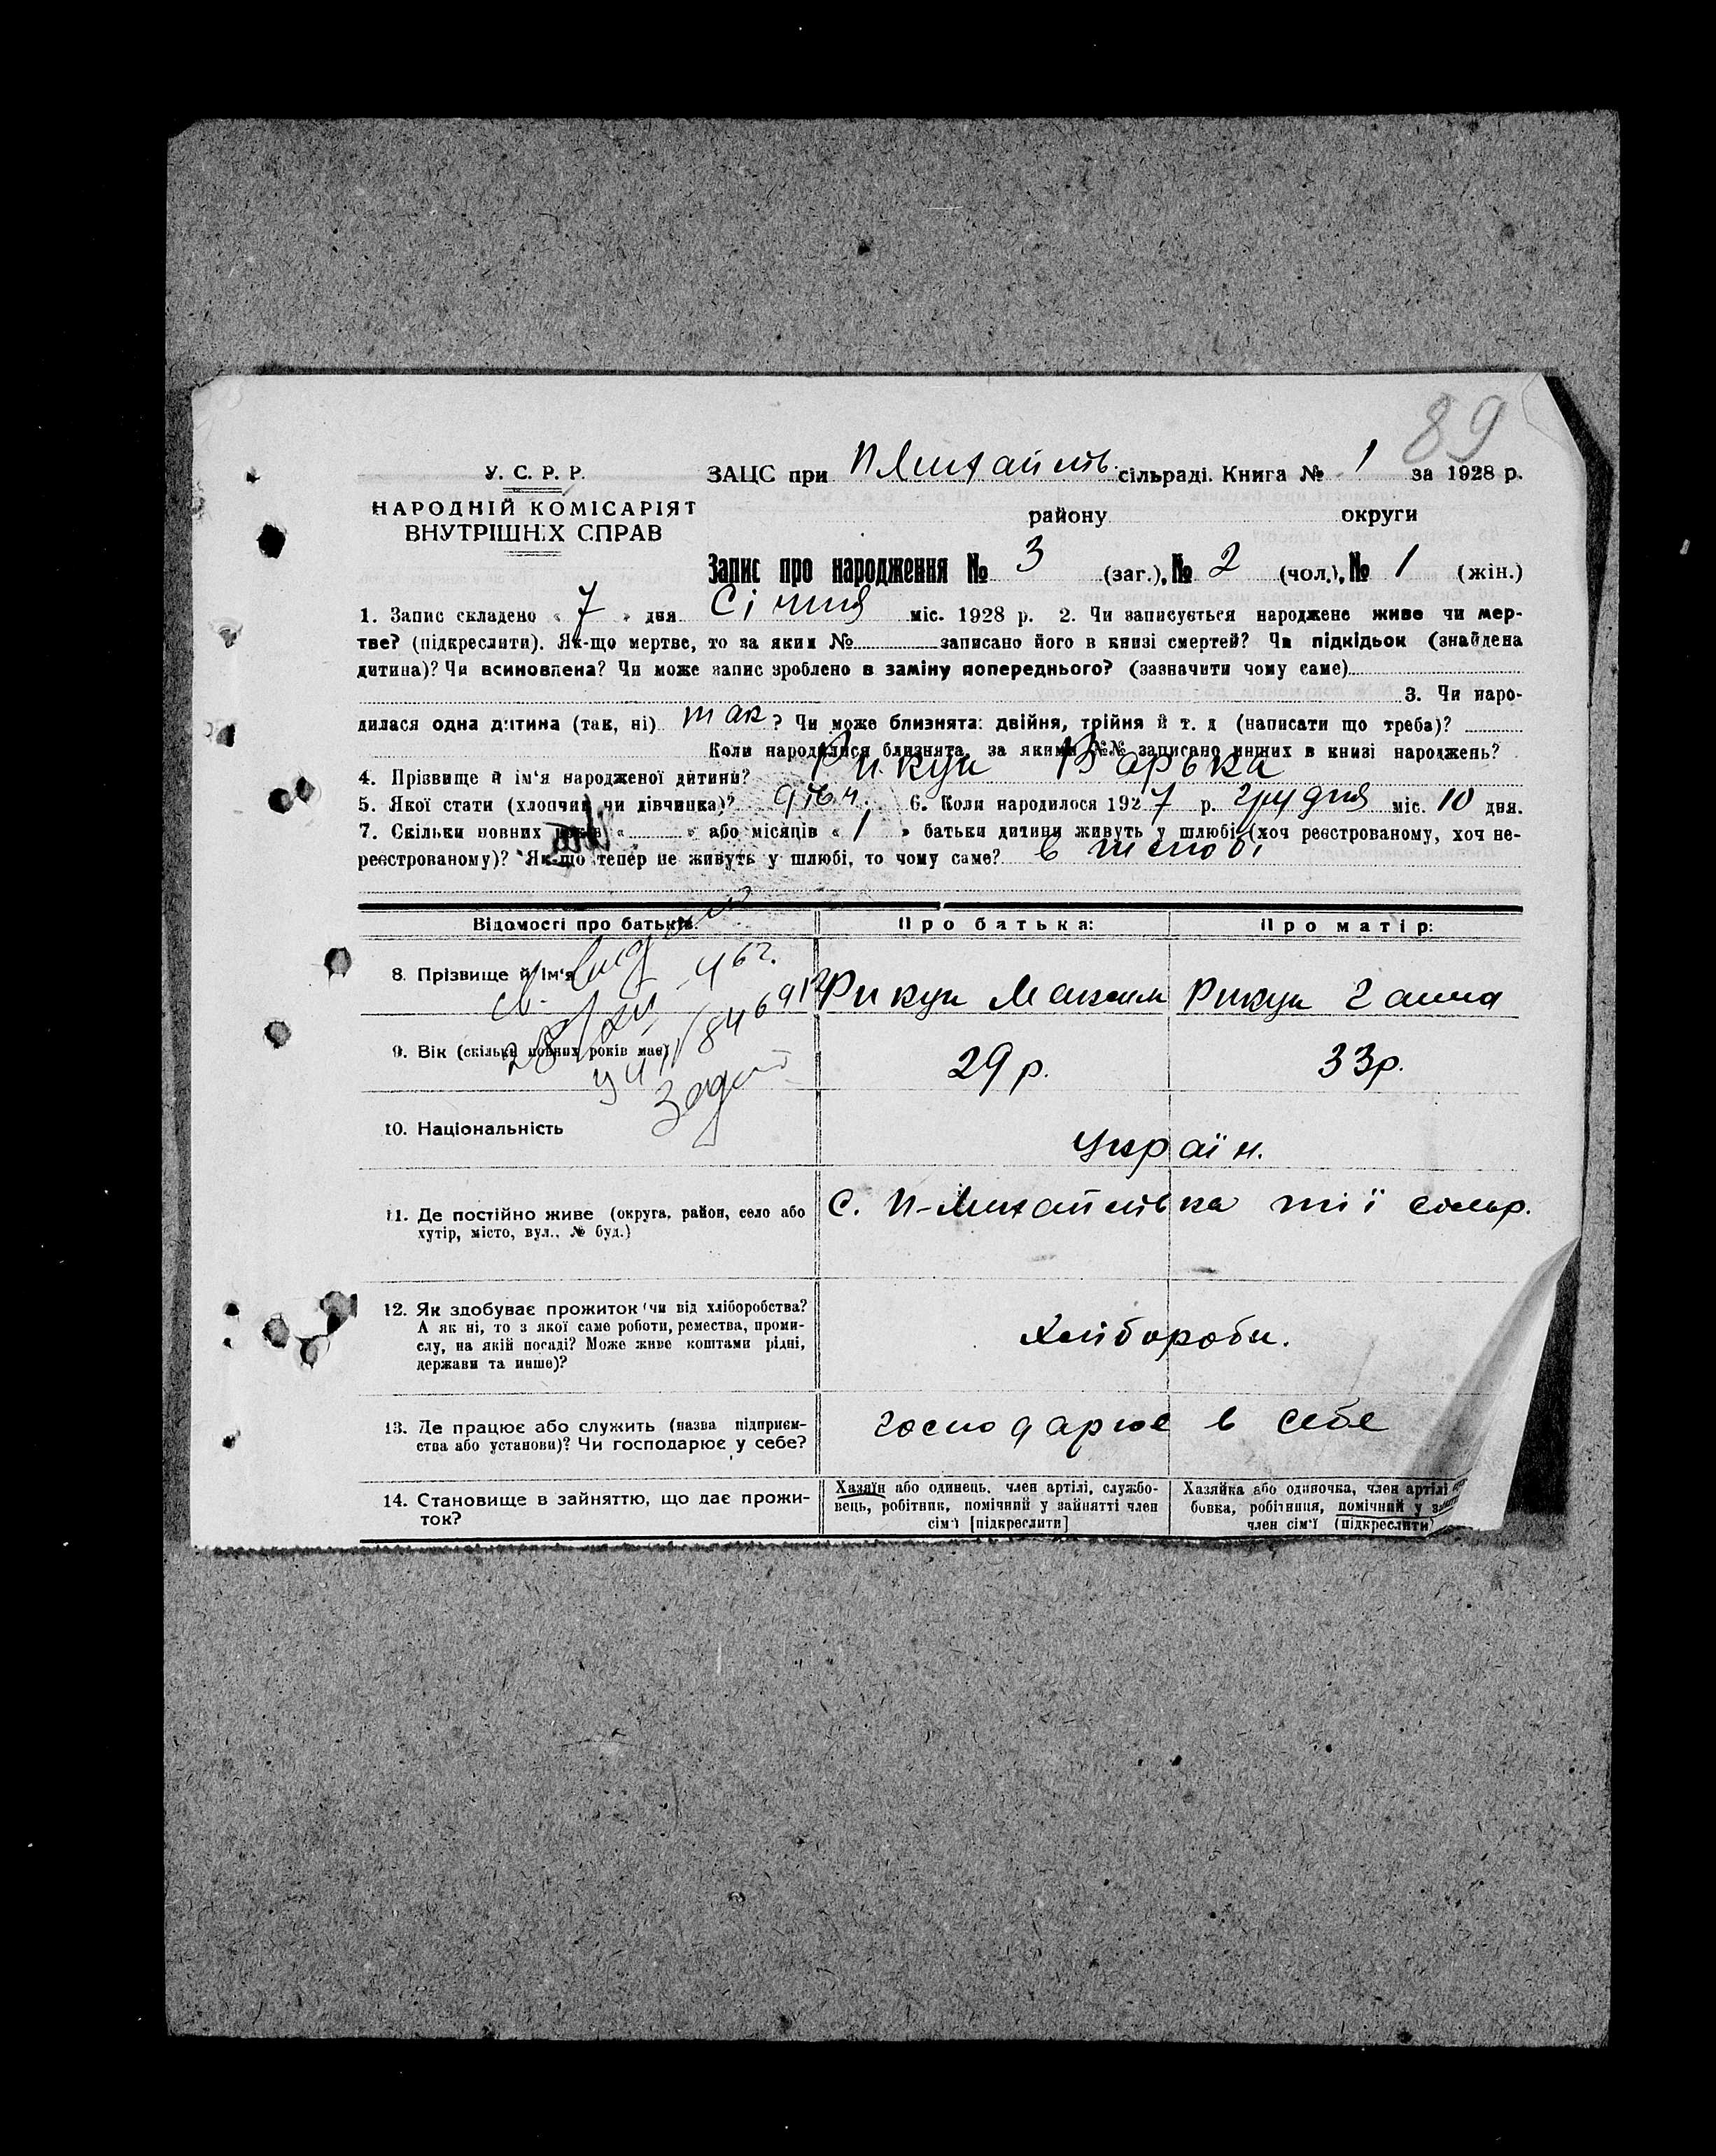 89
У. С. Р. Р.
НАРОДНІЙ КОМІСАРІЯТ
ВНУТРІШНІХ СПРАВ
ЗАЦС при П Михайлів. сільраді. Книга № 1 за 1928 р.
району округи
Запис про народження № 3 (заг.), № 2 (чол.), № 1 (жін.)
1. Запис складено « 7 » дня Січня міс. 1928 р. 2. Чи записується народжене живе чи мер-
тве? (підкреслити). Як-що мертве, то за яким № записано його в книзі смертей? Чи підкідьок (знайдена
дитина)? Чи всиновлена? Чи може запис зроблено в заміну попереднього? (зазначити чому саме)
3. Чи наро-
дилася одна дитина (так, ні) так? Чи може близнята: двійня, трійня й т. д (написати що треба)?
Коли народилися близнята, за якими №№ записано инших в книзі народжень?
4. Прізвище й ім'я народженої дитини? Рикун Варька
5. Якої стати (хлопчик чи дівчинка)? дівч. 6. Коли народилося 1927 р. грудня міс. 10 дня.
7. Скільки повних років « » або місяців « 1 » батьки дитини живуть у шлюбі (хоч реєстрованому, хоч не-
реєстрованому)? Як-що тепер не живуть у шлюбі, то чому саме? в шлюбі
Відомості про батьків: Про батька: Про матір:
8. Прізвище й ім'я Рикун Максим Рикун Ганна
9. Вік (скільки повних років має) 29 р. 33р.
10. Національність Україн.
11. Де постійно живе (округа, район, село або
хутір, місто, вул., № буд.)
С. П-Михайлівка тії сільр.
12. Як здобуває прожиток чи від хліборобства?
А як ні, то з якої саме роботи, ремества, проми-
слу, на якій посаді? Може живе коштами рідні,
держави та инше)?
Хлібороби.
13. Де працює або служить (назва підприєм-
ства або установи)? Чи господарює у себе?
господарює в себе
14. Становище в зайняттю, що дає прожи-
ток?
Хазяїн або одинець, член артілі, службо-
вець, робітник, помічний у зайнятті член
сім'ї [підкреслити]
Хазяйка або одиночка, член артілі
бовка, робітниця, помічний у
член сім'ї (підкреслити)